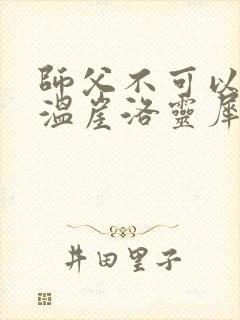 師父不可以
溫崖洛靈犀
井田里子